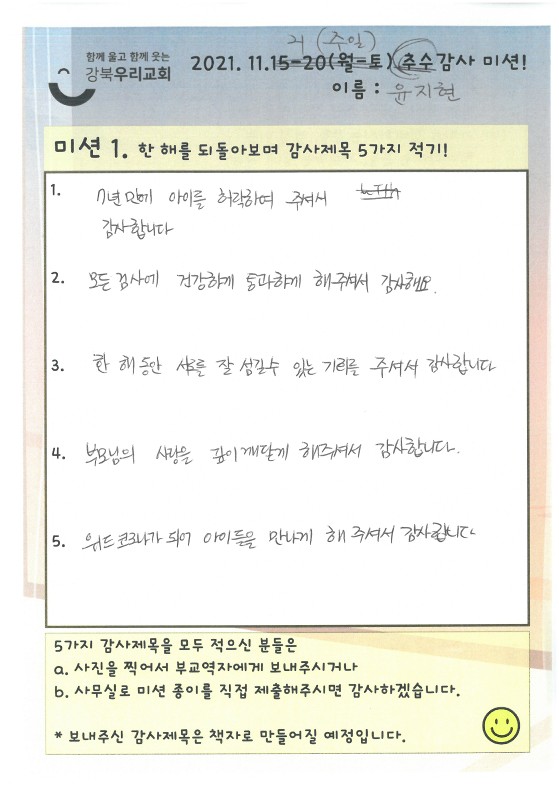 21 (주일)
함께 울고 함께 웃는
강북우리교회
2021. 11.15-20(월-토) 추수감사 미션!
이름 : 윤지현
미션 1. 한 해를 되돌아보며 감사제목 5가지 적기!
1. 7년만에 아이를 허락하여 주셔서
감사합니다
2. 모든 검사에 건강하게 통과하게 해주셔서 감사해요.
3. 한 해 동안 샤를 잘 섬길수 있는 기회를 주셔서 감사합니다
4. 부모님의 사랑을 깊이 깨닫게 해주셔서 감사합니다.
5. 위드코로나가 되어 아이들을 만나게 해 주셔서 감사합니다
5가지 감사제목을 모두 적으신 분들은
a. 사진을 찍어서 부교역자에게 보내주시거나
b. 사무실로 미션 종이를 직접 제출해주시면 감사하겠습니다.
* 보내주신 감사제목은 책자로 만들어질 예정입니다.